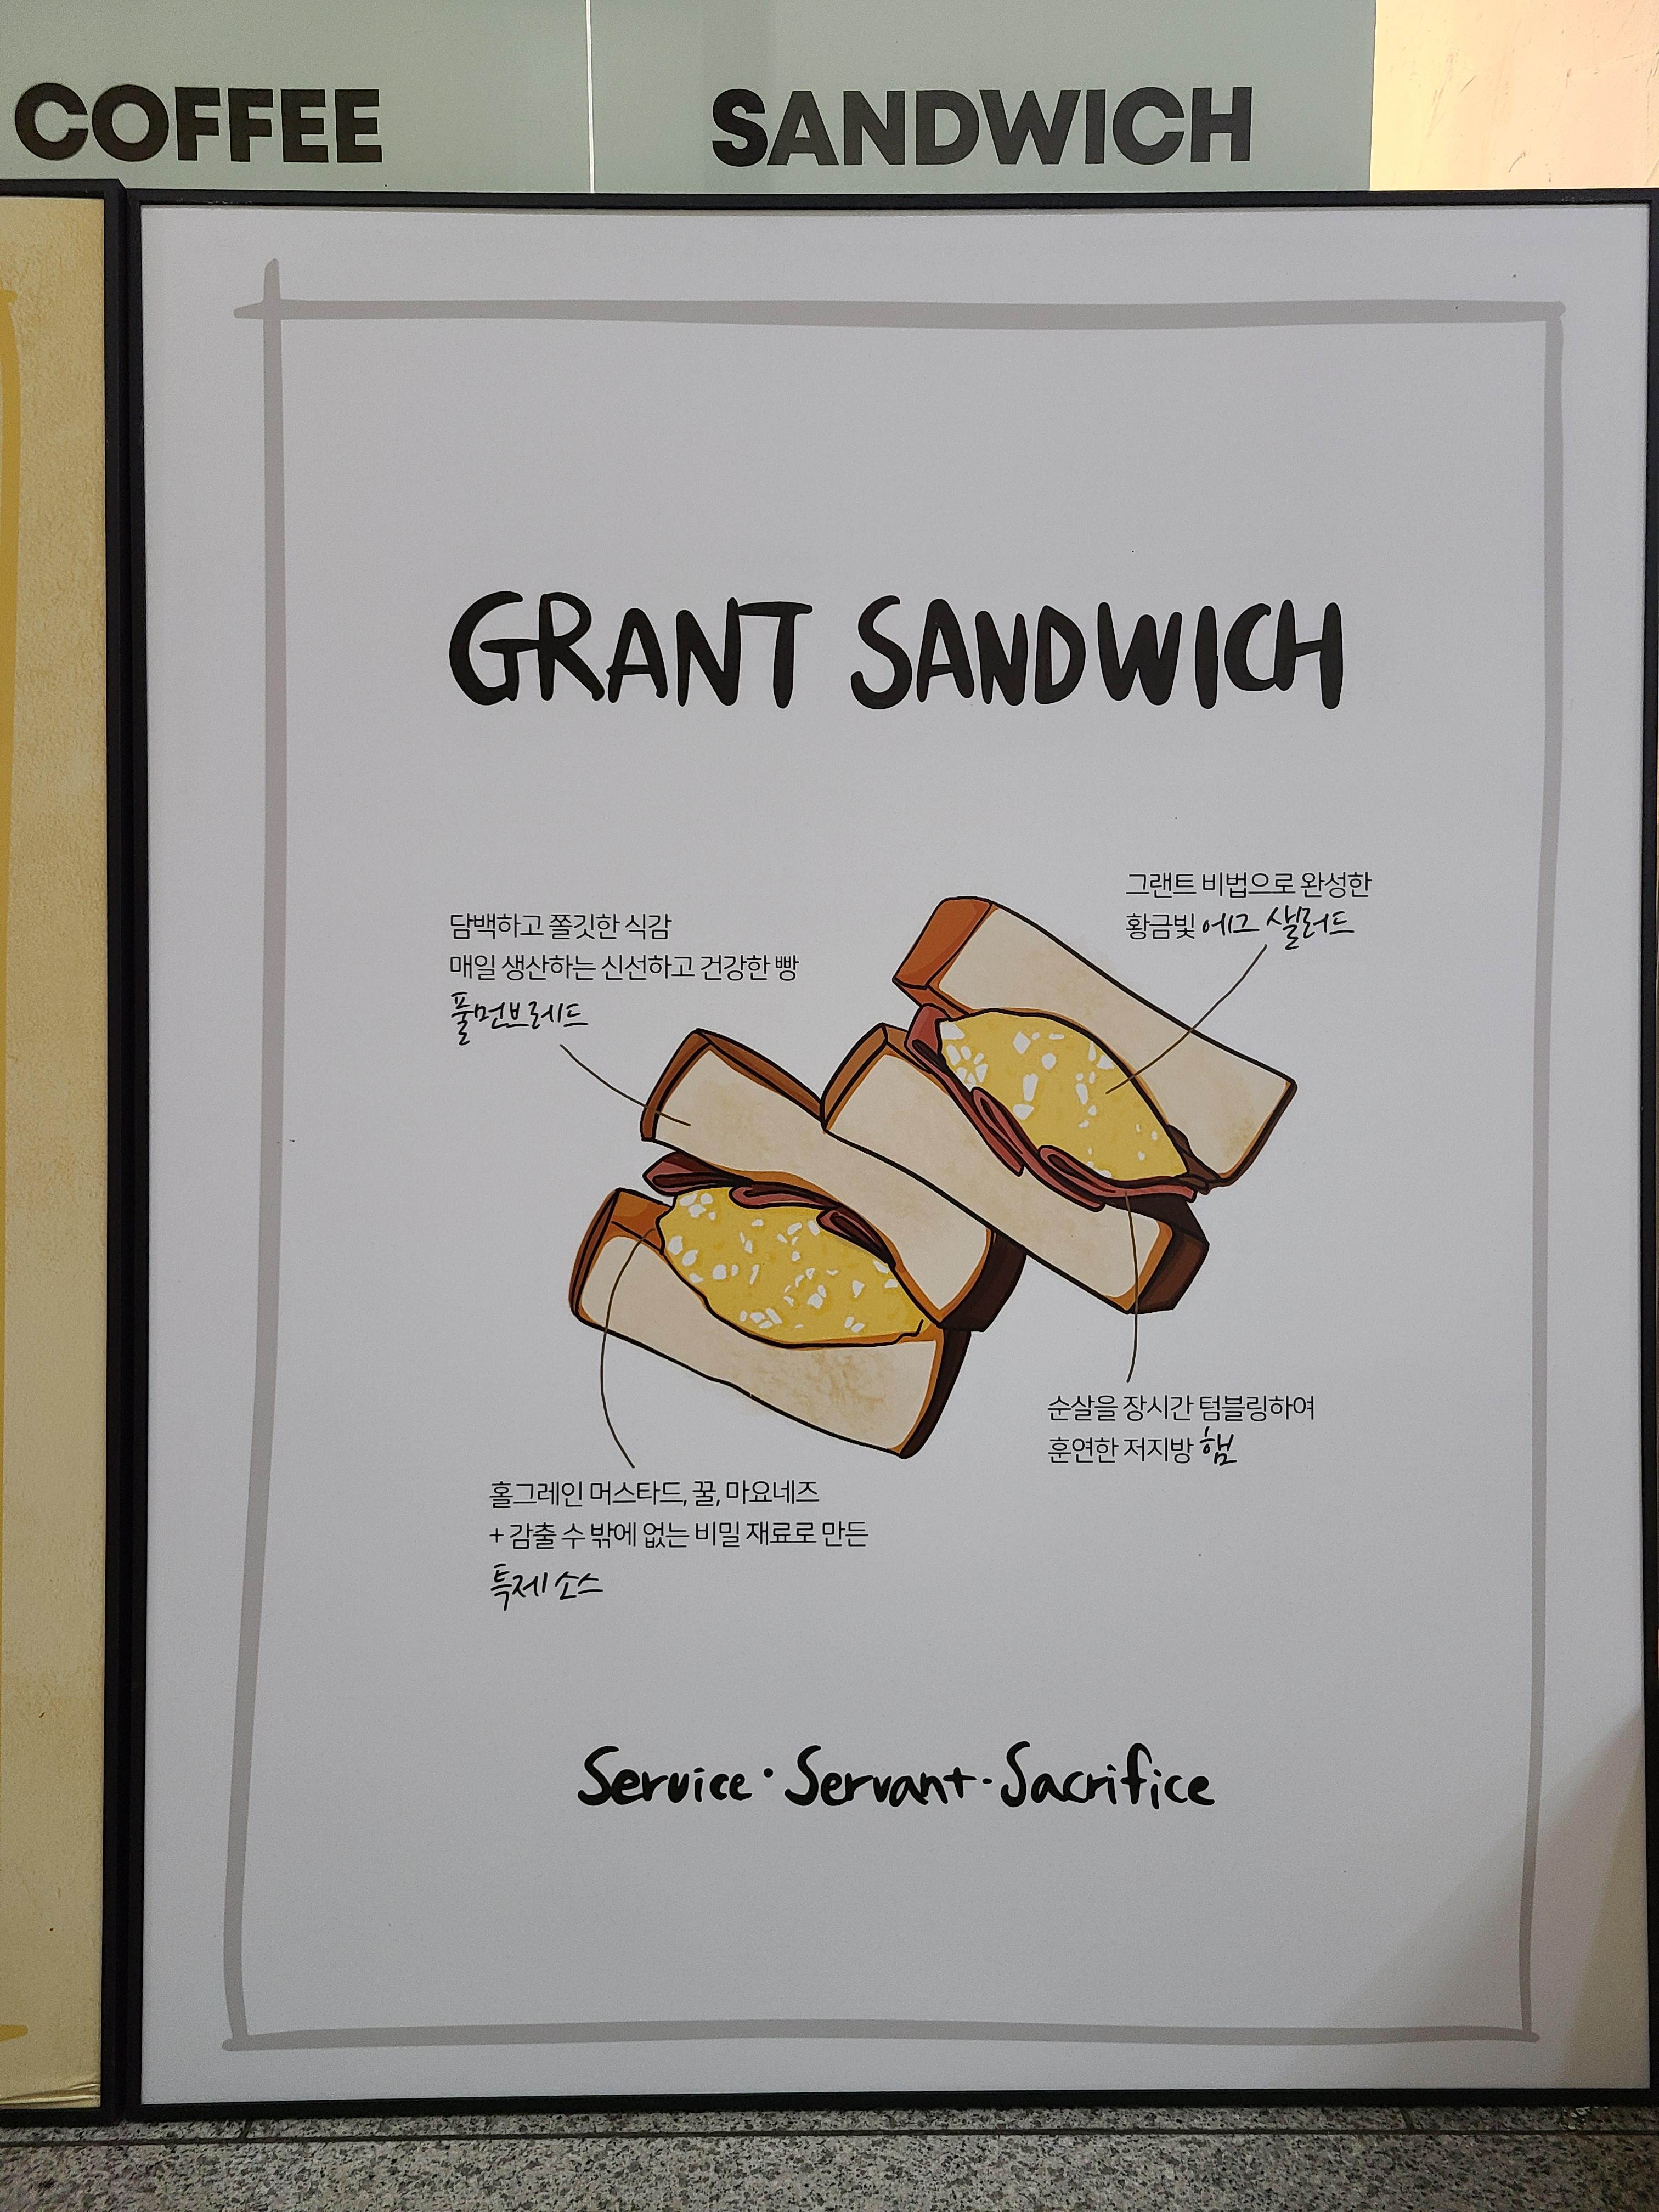 COFFEE
SANDWICH
GRANT SANDWICH
그랜트 비법으로 완성한
황금빛 에그 샐러드
담백하고 쫄깃한 식감
매일 생산하는 신선하고 건강한 빵
풀먼브레드
순살을 장시간 텀블링하여
훈연한 저지방 햄
홀그레인 머스타드, 꿀, 마요네즈
+ 감출 수 밖에 없는 비밀 재료로 만든
특제 소스
Service · Servant · Sacrifice